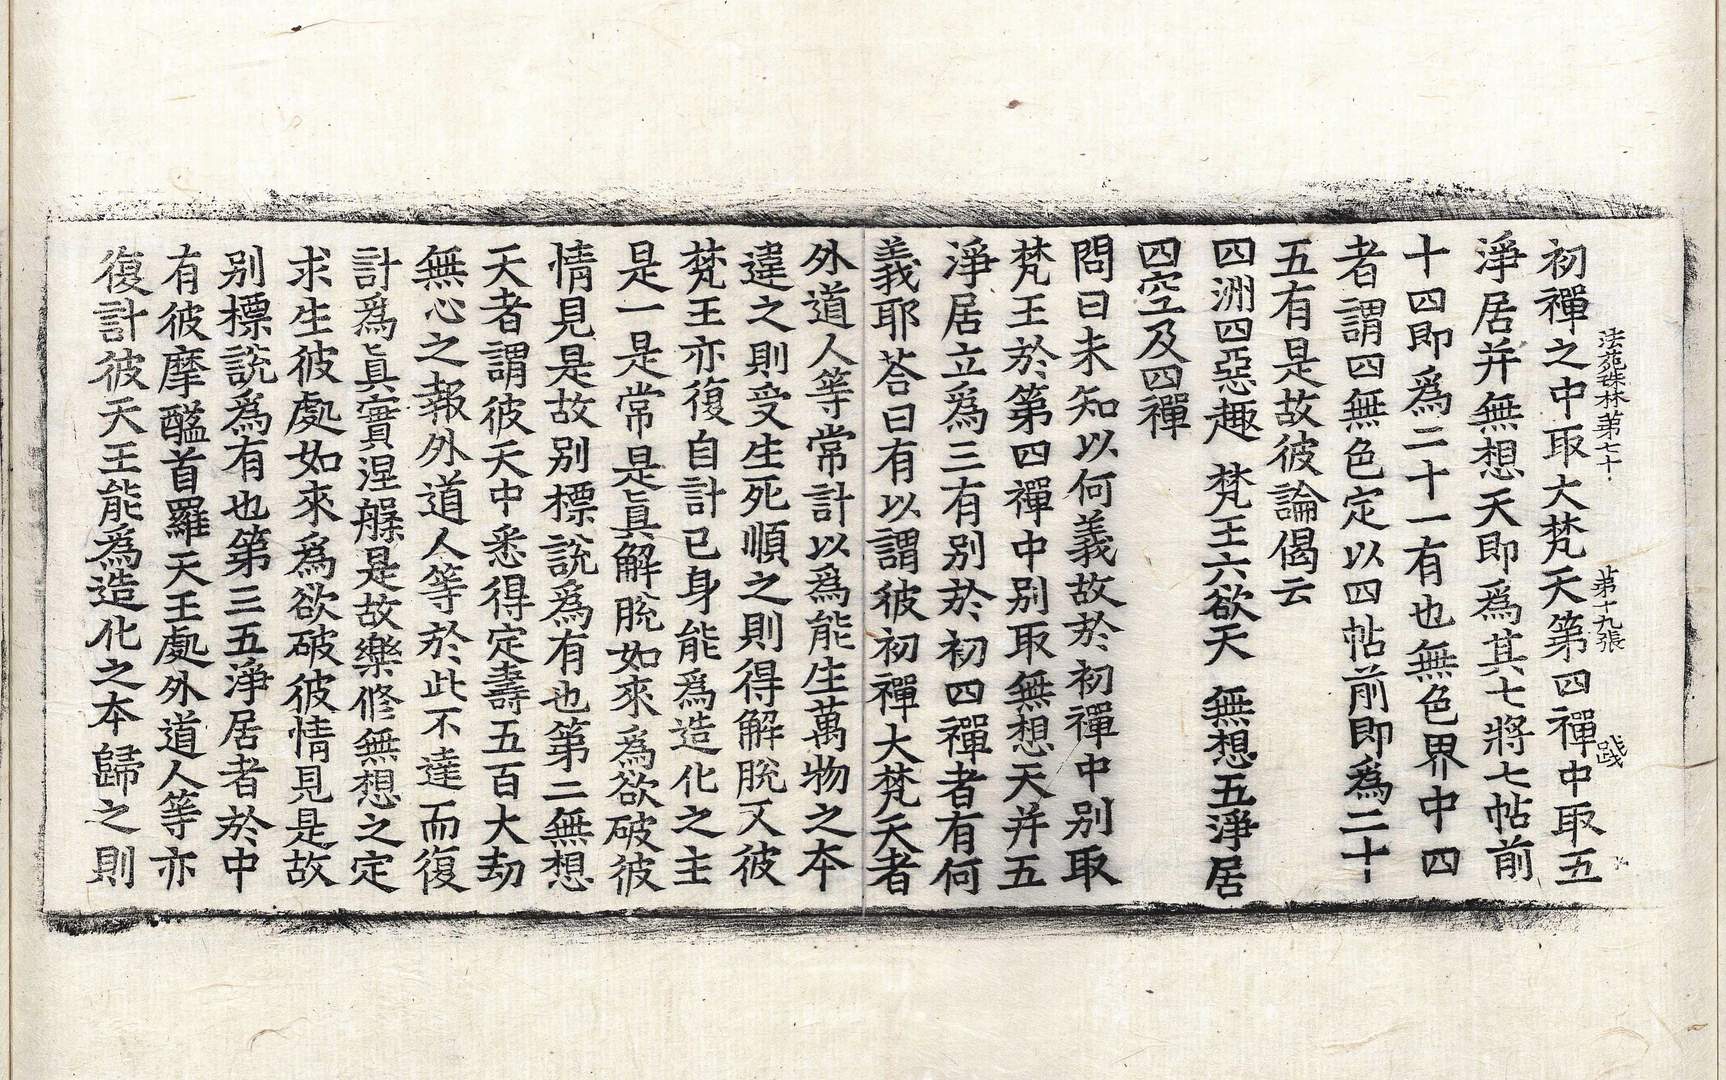 法苑珠林第七十 第十九張 踐
初禪之中取大梵天第四禪中取五
淨居并無想天即爲其七將七帖前
十四即爲二十一有也無色界中四
者謂四無色定以四帖前即爲二十
五有是故彼論偈云
四洲四惡趣 梵王六欲天 無想五淨居
四空及四禪
問曰未知以何義故於初禪中別取
梵王於第四禪中別取無想天并五
淨居立爲三有別於初四禪者有何
義耶荅曰有以謂彼初禪大梵天者
外道人等常計以爲能生萬物之本
違之則受生死順之則得解脫又彼
梵王亦復自計已身能爲造化之主
是一是常是眞解脫如來爲欲破彼
情見是故別標說爲有也第二無想
天者謂彼天中悉得定壽五百大劫
無心之報外道人等於此不達而復
計爲眞實涅槃是故樂修無想之定
求生彼處如來爲欲破彼情見是故
別標說爲有也第三五淨居者於中
有彼摩醯首羅天王處外道人等亦
復計彼天王能爲造化之本歸之則